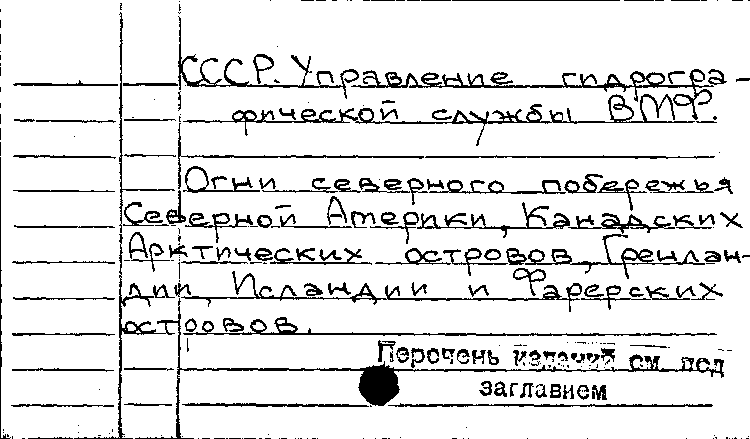 СССР. Управление гидрогра-
фической службы ВМФ.
Огни северного побережья
Северной Америки, Канадских
Арктических островов, Гренлан-
дии, Исландии и Фарерских
островов.
Перечень изданий см. под
заглавием